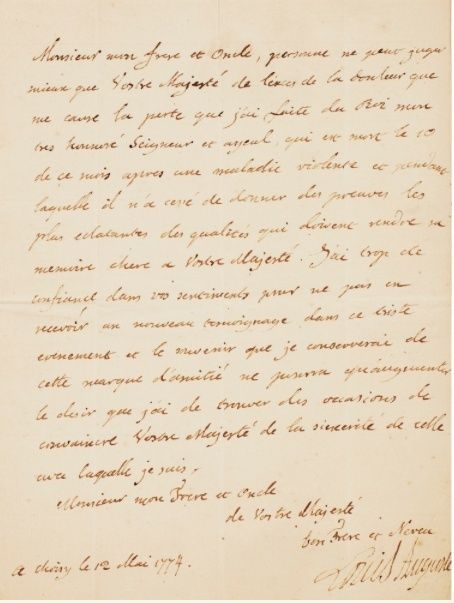 Monsieur mon frere et Oncle, personne ne peut juger
mieux que Vostre Majesté de l'exces de la douleur que
me cause la perte que j'ai faite du Roi mon
tres honnoré Seigneur et ayeul, qui est mort le 10
de ce mois apres une maladie violente et pendant
laquelle il n'a cessé de donner des preuves les
plus eclatantes des qualités qui doivent rendre sa
memoire chere a Vostre Majesté. J'ai trop de
confiance dans vos sentiments pour ne pas en
recevoir un nouveau temoignage dans ce triste
evenement et le souvenir que je conserverai de
cette marque d'amitié ne pourra qu'augmenter
le desir que j'ai de trouver des occasions de
convaincre Vostre Majesté de la sincerité de celle
avec laquelle je suis,
Monsieur mon Frere et Oncle
de Vostre Majesté
bon Frere et Neveu
a choisy le 12 Mai 1774.
Louis Auguste